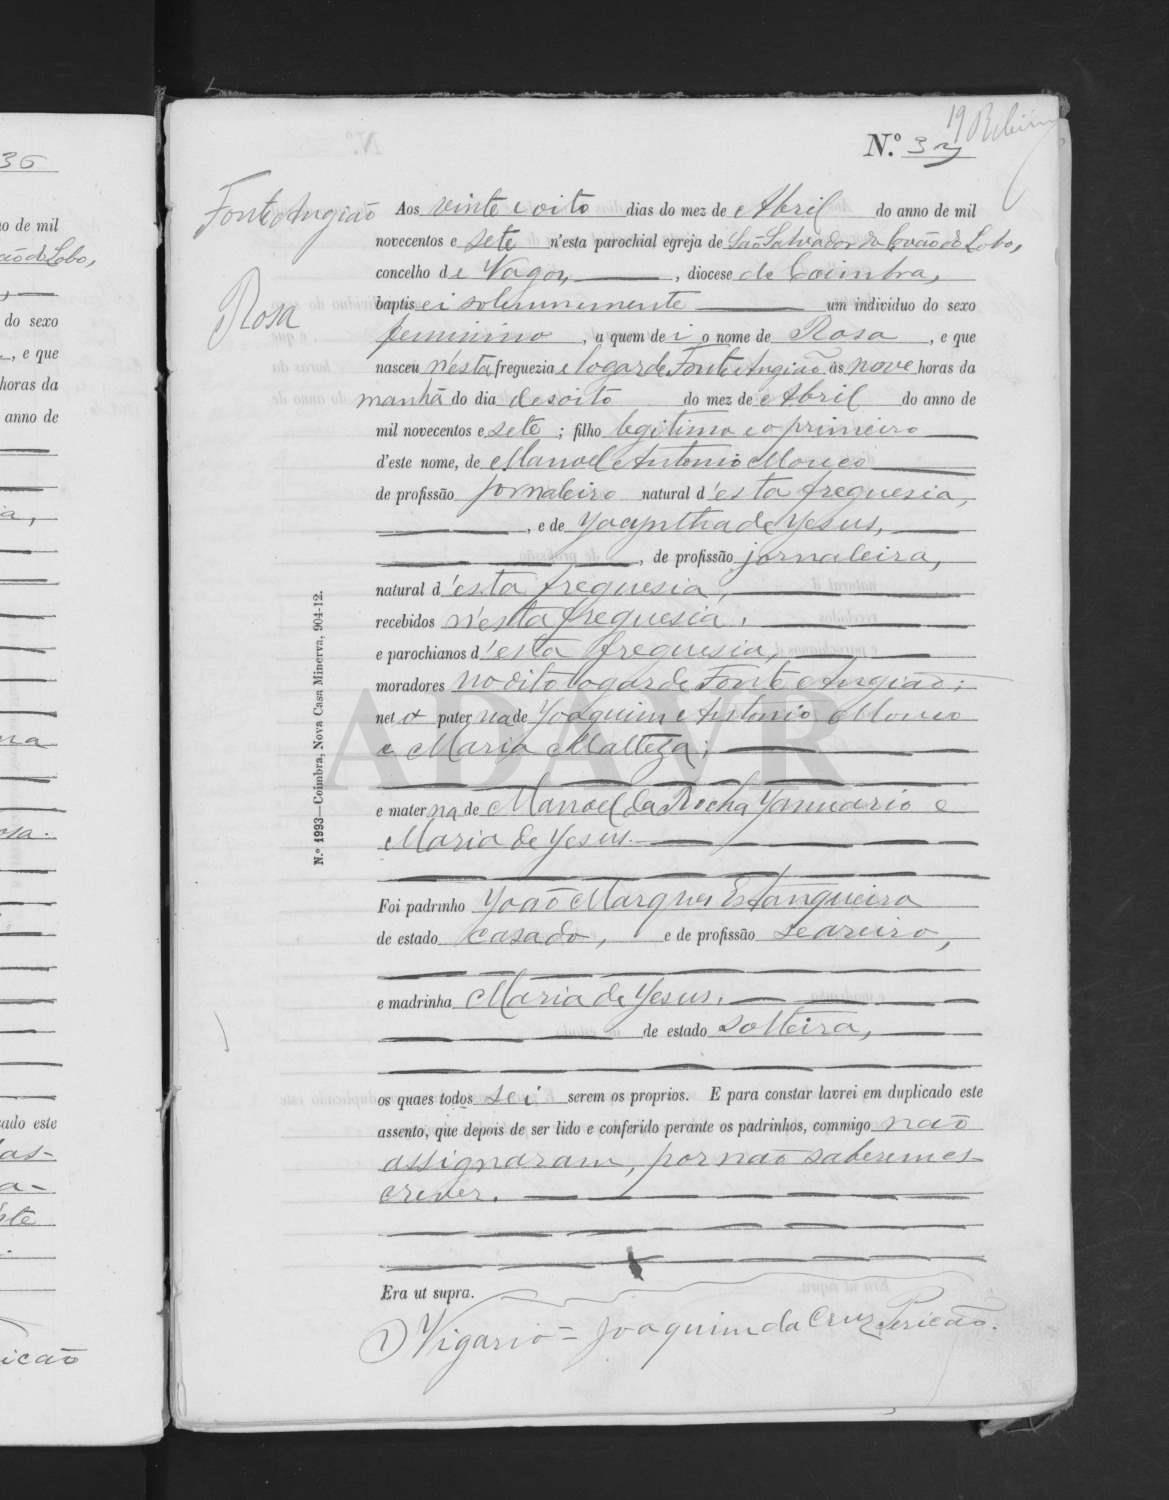 36
o de mil
ão do Lobo,
do sexo
, e que
horas da
anno de
ia,
na
osa.
cado este
as-
a-
ste
icão
19 Ribeiro
N.º 37
Fonte Angião
Rosa
Aos vinte e oito dias do mez de Abril do anno de mil
novecentos e sete n'esta parochial egreja de São Salvador da Covão do Lobo,
concelho de Vagos, diocese de Coimbra,
baptisei solemnemente um individuo do sexo
feminino, a quem dei o nome de Rosa, e que
nasceu n'esta freguezia e logar de Fonte Angião ás nove horas da
manhã do dia desoito do mez de Abril do anno de
mil novecentos e sete; filho legitimo e o primeiro
d'este nome, de Manoel Antonio Mouco
de profissão jornaleiro natural d'esta freguesia,
, e de Jacyntha de Jesus,
, de profissão jornaleira,
natural d'esta freguesia,
recebidos n'esta freguesia,
e parochianos d'esta freguesia,
moradores no dito logar de Fonte Angião;
neta paterna de Joaquim Antonio Mouco
e Maria Malteza;
e materna de Manoel da Rocha Januario e
Maria de Jesus.
Foi padrinho João Marques Estanqueiro
de estado casado, e de profissão seareiro,
e madrinha Maria de Jesus,
de estado solteira,
os quaes todos sei serem os proprios. E para constar lavrei em duplicado este
assento, que depois de ser lido e conferido perante os padrinhos, commigo não
assignaram, por não saberem es
crever.
Era ut supra.
O Vigario = Joaquim da Cruz Pericão.
N.º 1993—Coimbra, Nova Casa Minerva, 904-12.
ADAVR